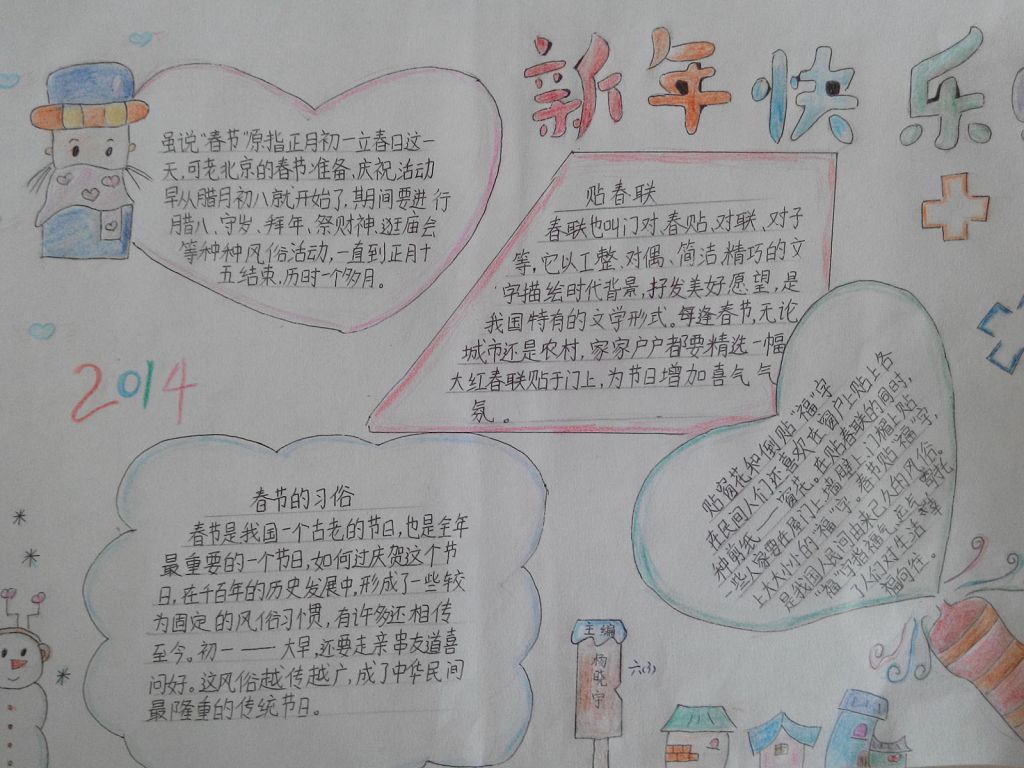 新年快乐
虽说“春节”原指正月初一立春日这一
天,可老北京的春节准备、庆祝活动
早从腊月初八就开始了,期间要进行
腊八、守岁、拜年、祭财神、逛庙会
等种种风俗活动,一直到正月十
五结束,历时一个多月。
贴春联
春联也叫门对、春贴、对联、对子
等,它以工整、对偶、简洁、精巧的文
字描绘时代背景,抒发美好愿望,是
我国特有的文学形式。每逢春节,无论
城市还是农村,家家户户都要精选一幅
大红春联贴于门上,为节日增加喜气气
氛。
2014
贴窗花和倒贴“福”字
在民间人们还喜欢在窗户上贴上各
种剪纸——窗花。在贴春联的同时,
一些人家要在屋门上、墙壁上、门楣上贴
上大大小小的“福”字。春节贴“福”字,
是我国人民间由来已久的风俗。
“福”字指福气、运气,寄托
了人们对生活 幸
福向往。
春节的习俗
春节是我国一个古老的节日,也是全年
最重要的一个节日,如何过庆贺这个节
日,在千百年的历史发展中,形成了一些较
为固定的风俗习惯,有许多还相传
至今。初一——大早,还要走亲串友道喜
问好。这风俗越传越广,成了中华民间
最隆重的传统节日。
主编
杨晓宇
六(3)